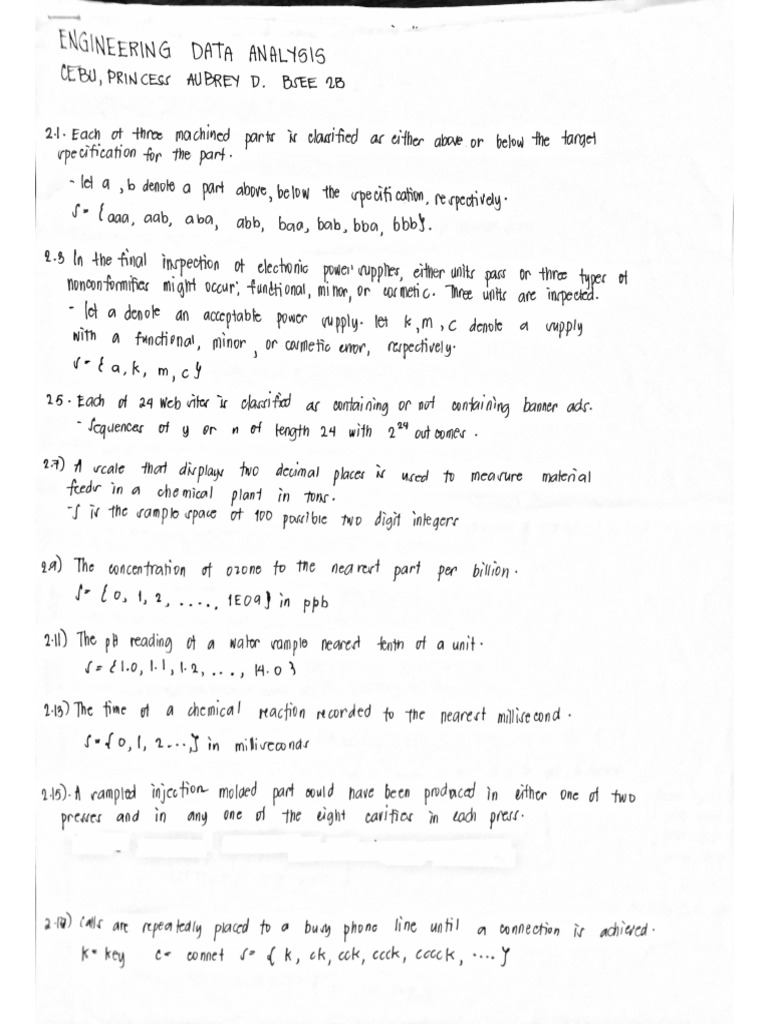 ENGINEERING DATA ANALYSIS
CEBU, PRINCESS AUBREY D. BSEE 2B
2.1. Each of three machined parts is classified as either above or below the target
specification for the part.
- let a, b denote a part above, below the specification, respectively.
S = {aaa, aab, aba, abb, baa, bab, bba, bbb}.
2.3 In the final inspection of electronic power supplies, either units pass or three types of
nonconformities might occur; functional, minor, or cosmetic. Three units are inspected.
- let a denote an acceptable power supply. let k, m, c denote a supply
with a functional, minor, or cosmetic error, respectively.
S = {a, k, m, c}
2.5. Each of 24 web sites is classified as containing or not containing banner ads.
- Sequences of y or n of length 24 with 2²⁴ outcomes.
2.7) A scale that displays two decimal places is used to measure material
feeds in a chemical plant in tons.
- S is the sample space of 100 possible two digit integers
2.9) The concentration of ozone to the nearest part per billion.
S = {0, 1, 2, ....., 1E09} in ppb
2.11) The pH reading of a water sample nearest tenth of a unit.
S = {1.0, 1.1, 1.2, ..., 14.0}
2.13) The time of a chemical reaction recorded to the nearest millisecond.
S = {0, 1, 2...,} in miliseconds
2.15). A sampled injection molded part could have been produced in either one of two
presses and in any one of the eight cavities in each press.
Calls are repeatedly placed to a busy phone line until a connection is achieved.
k = key c = connet S = {k, ck, cck, ccck, cccck, ....}